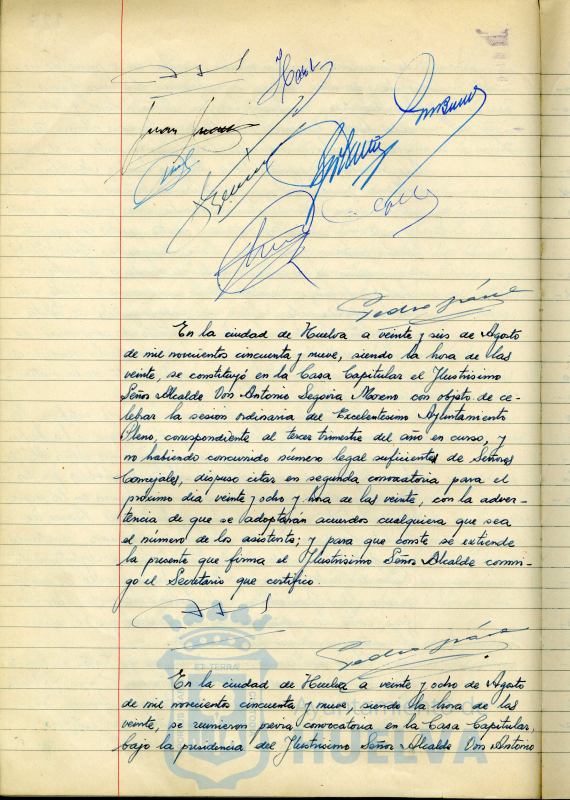 Juan
Pedro
En la ciudad de Huelva a veinte y seis de Agosto
de mil novecientos cincuenta y nueve, siendo la hora de las
veinte, se constituyó en la Casa Capitular el Ilustrisimo
Señor Alcalde Don Antonio Segovia Moreno con objeto de ce-
lebrar la sesión ordinaria del Excelentisimo Ayuntamiento
Pleno, correspondiente al tercer trimestre del año en curso, y
no habiendo concurrido número legal suficientes de Señores
Concejales, dispuso citar en segunda convocatoria para el
próximo dia veinte y ocho y hora de las veinte, con la adver-
tencia de que se adoptarán acuerdos cualquiera que sea
el número de los asistentes; y para que conste se extiende
la presente que firma el Ilustrisimo Señor Alcalde conmi-
go el Secretario que certifico.
Pedro
En la ciudad de Huelva a veinte y ocho de Agosto
de mil novecientos cincuenta y nueve, siendo la hora de las
veinte, se reunieron previa convocatoria en la Casa Capitular,
bajo la presidencia del Ilustrisimo Señor Alcalde Don Antonio
HUELVA